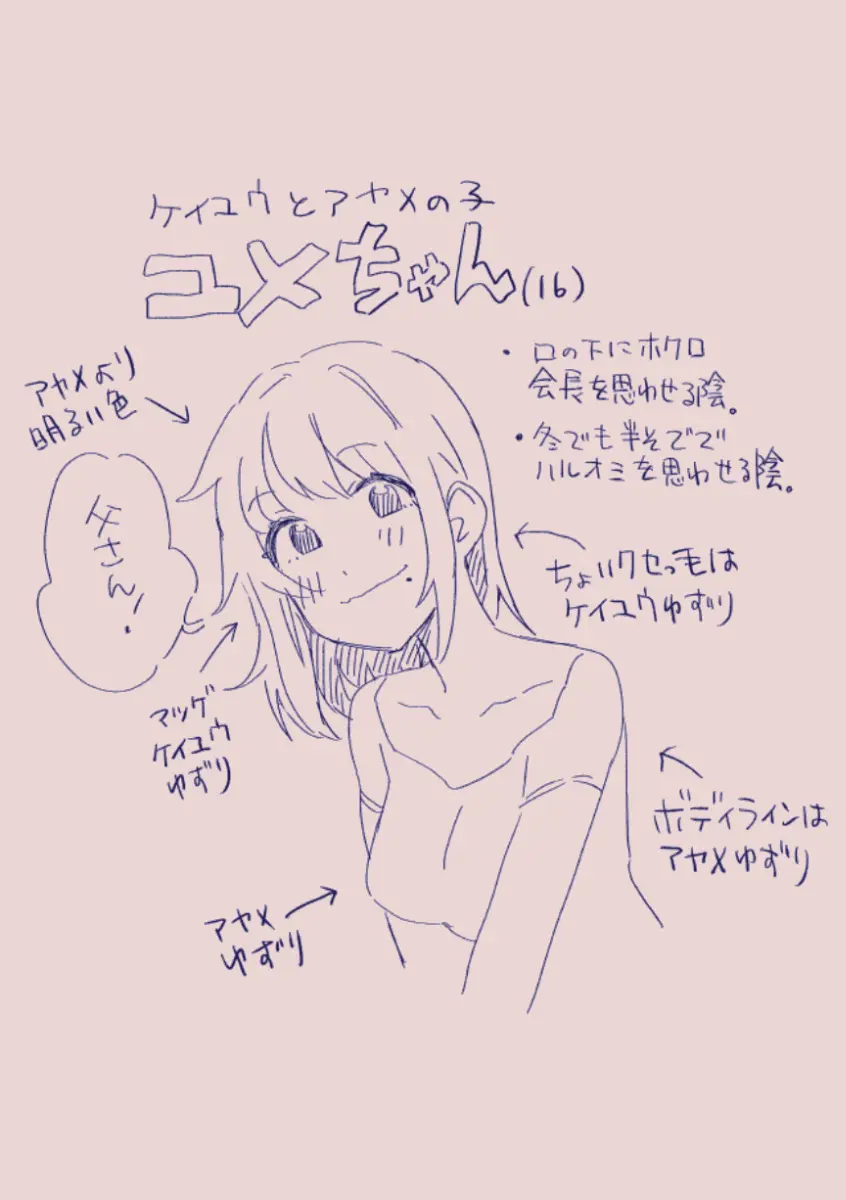 ケイユウとアヤメの子
ユメちゃん(16)
・口の下にホクロ
会長を思わせる陰。
・冬でも半そでで
ハルオミを思わせる陰。
アヤメより
明るい色
父さん!
ちょいクセっ毛は
ケイユウゆずり
マツゲ
ケイユウ
ゆずり
ボディラインは
アヤメゆずり
アヤメ
ゆずり